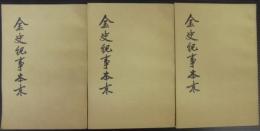 金史紀事本末
金史紀事本末
金史紀事本末